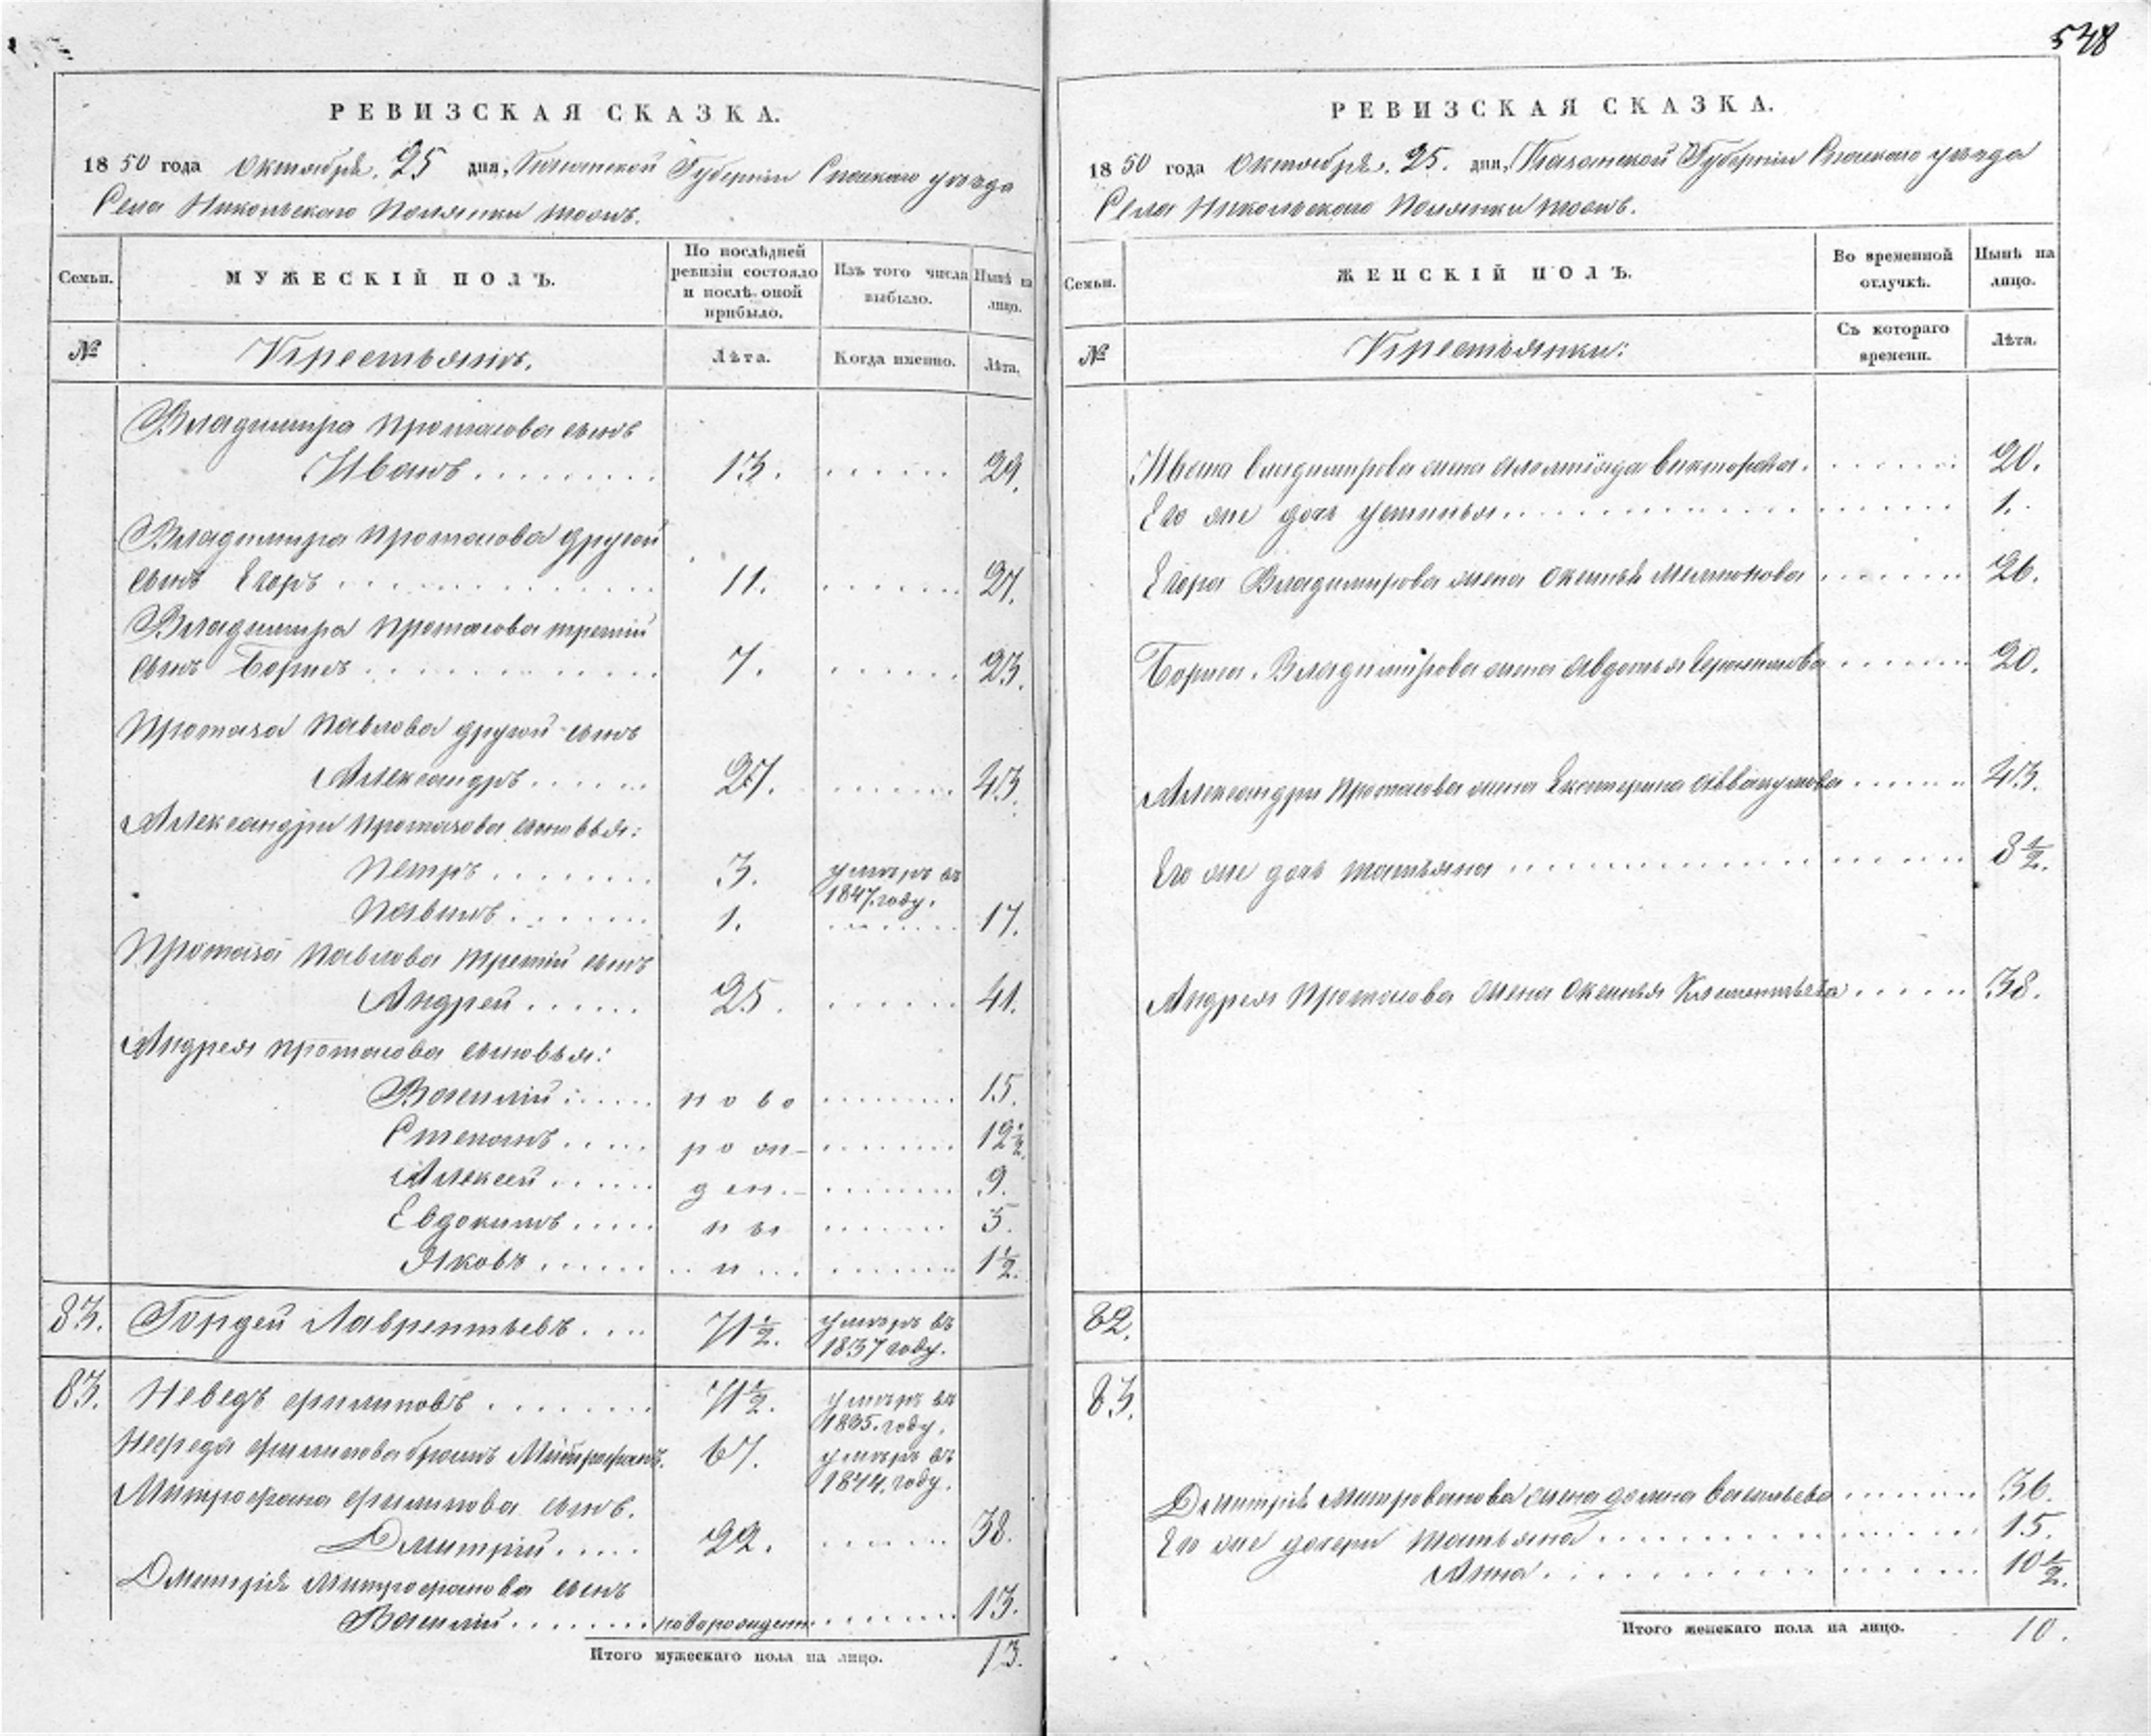 548
РЕВИЗСКАЯ СКАЗКА.
1850 года Октября 25 дня, Казанской Губернии Спаскаго уѣзда
Села Никольскаго Полянки тожъ.
Семьи.
МУЖЕСКІЙ ПОЛЪ.
По послѣдней ревизіи состояло и послѣ оной прибыло.
Изъ того числа выбыло.
Нынѣ на лицо.
№
Крестьянъ.
Лѣта.
Когда именно.
Лѣта.
Владимира Протасова сынъ
Иванъ 13. 29.
Владимира Протасова другой
сынъ Егоръ 11. 27.
Владимира Протасова третій
сынъ Борисъ 7. 23.
Протаса Павлова другой сынъ
Александръ 27. 43.
Александра Протасова сыновья:
Петръ 3. умеръ въ 1847 году.
Павелъ 1. 17.
Протаса Павлова третій сынъ
Андрей 25. 41.
Андрея Протасова сыновья:
Василій ново 15.
Степанъ рож- 12 1/2.
Алексей ден- 9.
Евдокимъ ны 5.
Яковъ и 1 1/2.
83. Гордей Лаврентьевъ 71 1/2. умеръ въ 1837 году.
83. филиповъ 71 1/2. умеръ въ 1835 году.
филипова братъ Митрофанъ. 67. умеръ въ 1844 году.
Митрофана филипова сынъ.
Дмитрій 22. 38.
Дмитрія Митрофанова сынъ
Василій новорожден. 13.
Итого мужескаго пола на лицо. 13.
РЕВИЗСКАЯ СКАЗКА.
1850 года Октября 25. дня, Казанской Губерніи Спаскаго уѣзда
Села Никольскаго Полянки тожъ.
Семьи.
ЖЕНСКІЙ ПОЛЪ.
Во временной отлучкѣ.
Нынѣ на лицо.
№
Крестьянки:
Съ котораго времени.
Лѣта.
Ивана Владимирова жена викторова. 20.
Его же дочь устинья 1.
Егора Владимирова жена 26.
Бориса Владимирова жена Авдотья 20.
Александра Протасова жена Екатерина Аввакумова 43.
Его же дочь татьяна 8 1/2.
Андрея Протасова жена Клементьева 38.
82.
83.
Дмитрія Митрованова жена васильева 36.
Его же дочери татьяна 15.
Анна 10 1/2.
Итого женскаго пола на лицо. 10.